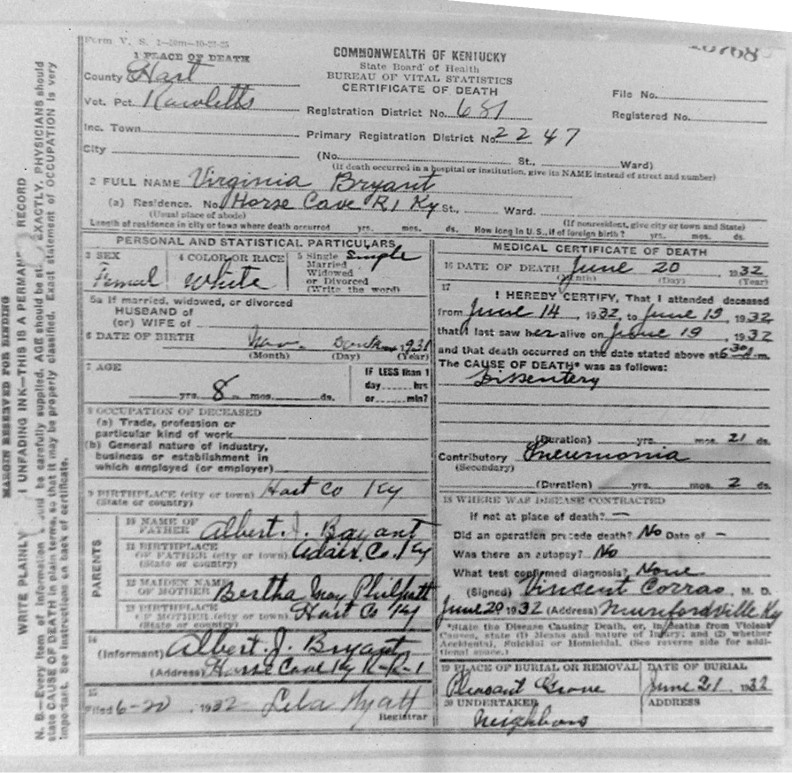 Form V. S. 1-50m-10-23-25
1 PLACE OF DEATH
County Hart
Vot. Pct. Rowletts
Inc. Town
City
COMMONWEALTH OF KENTUCKY
State Board of Health
BUREAU OF VITAL STATISTICS
CERTIFICATE OF DEATH
Registration District No. 681
Primary Registration District No. 2247
File No.
Registered No.
(No. St., Ward)
(If death occurred in a hospital or institution, give its NAME instead of street and number)
2 FULL NAME Virginia Bryant
(a) Residence. No. Horse Cave R1 Ky St., Ward.
(Usual place of abode) (If nonresident, give city or town and State)
Length of residence in city or town where death occurred yrs. mos. ds. How long in U.S., if of foreign birth? yrs. mos. ds.
PERSONAL AND STATISTICAL PARTICULARS
3 SEX
Femal
4 COLOR OR RACE
White
5 Single Single
Married
Widowed
or Divorced
(Write the word)
5a If married, widowed, or divorced
HUSBAND of
(or) WIFE of
6 DATE OF BIRTH Nov. 1931
(Month) (Day) (Year)
7 AGE
yrs. 8 mos. ds.
IF LESS than 1
day hrs
or min?
8 OCCUPATION OF DECEASED
(a) Trade, profession or
particular kind of work
(b) General nature of industry,
business or establishment in
which employed (or employer)
9 BIRTHPLACE (city or town) Hart Co Ky
(State or country)
PARENTS
10 NAME OF
FATHER Albert J. Bryant
11 BIRTHPLACE
OF FATHER (city or town) Adair Co. Ky
(State or country)
12 MAIDEN NAME
OF MOTHER Bertha May Philpott
13 BIRTHPLACE
OF MOTHER (city or town) Hart Co Ky
(State or country)
14
(Informant) Albert J. Bryant
(Address) Horse Cave Ky R-R-1
15
Filed 6-20 1932 Lela Nyatt
Registrar
MEDICAL CERTIFICATE OF DEATH
16 DATE OF DEATH June 20 1932
(Month) (Day) (Year)
17
I HEREBY CERTIFY, That I attended deceased
from June 14, 1932, to June 19, 1932
that I last saw her alive on June 19, 1932
and that death occurred on the date stated above at 6 30 A m.
The CAUSE OF DEATH* was as follows:
Dissentery
(Duration) yrs. mos. 21 ds.
Contributory Pneumonia
(Secondary)
(Duration) yrs. mos. 2 ds.
18 WHERE WAS DISEASE CONTRACTED
If not at place of death? —
Did an operation precede death? No Date of —
Was there an autopsy? No
What test confirmed diagnosis? None
(Signed) Vincent Corrao, M. D.
June 20 1932 (Address) Munfordville Ky
*State the Disease Causing Death, or, in deaths from Violent
Causes, state (1) Means and nature of Injury; and (2) whether
Accidental, Suicidal or Homicidal. (See reverse side for addi-
tional space.)
19 PLACE OF BURIAL OR REMOVAL
Pleasant Grove
DATE OF BURIAL
June 21 1932
20 UNDERTAKER
Neighbors
ADDRESS
MARGIN RESERVED FOR BINDING
WRITE PLAINLY UNFADING INK—THIS IS A PERMANE RECORD
N. B.—Every item of information be carefully supplied. AGE should be EXACTLY. PHYSICIANS should
state CAUSE OF DEATH in plain terms, so that it may be properly classified. Exact statement of OCCUPATION is very
important. See instructions on back of certificate.